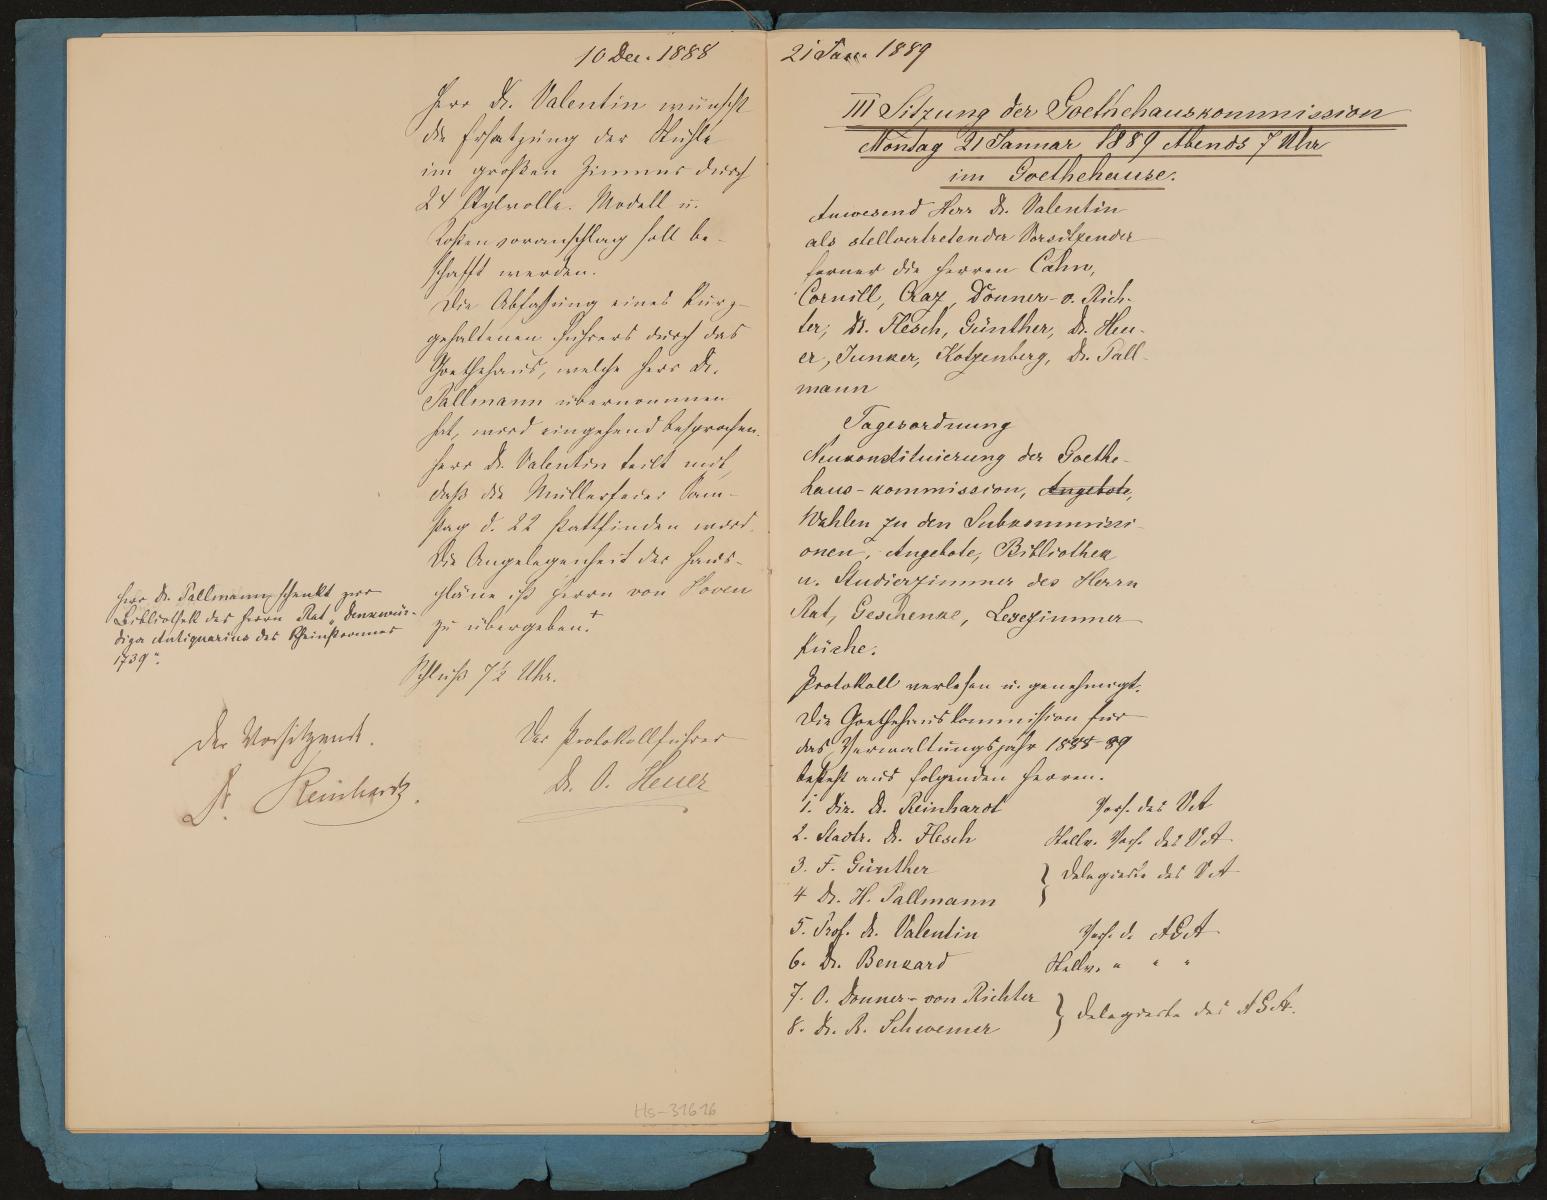 10 Dec. 1888
Herr Dr. Valentin wünscht
die Ersetzung der Stühle
im großen Zimmer durch
24 stylvolle. Modell u.
Kostenvoranschlag soll be-
schafft werden.
Die Abfassung eines kurz-
gehaltenen Führers durch das
Goethehaus, welche Herr Dr.
Pallmann übernommen
hat, wird eingehend besprochen.
Herr Dr. Valentin teilt mit,
daß die Müllerfeier Sam-
stag d. 22 stattfinden wird.
Die Angelegenheit der Haus-
pläne ist Herrn von Hoven
zu übergeben.+
Herr Dr. Pallmann schenkt zur
Bibliothek des Herrn Rat „Denkwür-
diger Antiquarius des Rheinstromes
1739".
Schluß 7½ Uhr.
Der Vorsitzende.
Dr. Reinhardt.
Der Protokollführer
Dr. O. Heuer
Hs-31616
21 Jan. 1889
III Sitzung der Goethehauskommission
Montag 21 Januar 1889 Abends 7 Uhr
im Goethehause.
Anwesend Herr Dr. Valentin
als stellvertretender Vorsitzender
ferner die Herren Cahn,
Cornill, Craz, Donner-v. Rich-
ter, Dr. Flesch, Günther, Dr. Heu-
er, Junker, Kotzenberg, Dr. Pall-
mann
Tagesordnung
Neukonstituierung der Goethe-
haus-kommission, Angebote,
Wahlen zu den Subkommissi-
onen, Angebote, Bibliothek
u. Studierzimmer des Herrn
Rat, Geschenke, Lesezimmer
Küche.
Protokoll verlesen u. genehmigt.
Die Goethehauskommission für
das Verwaltungsjahr 1888-89
besteht aus folgenden Herren.
1. Dir. Dr. Reinhardt Vors. des VA
2. Stadtr. Dr. Flesch Stellv. Vors. des VA
3. F. Günther
4 Dr. H. Pallmann } Delegierte des VA
5. Prof. Dr. Valentin Vors. d. AGA
6. Dr. Benkard Stellv. " " "
7. O. Donner-von Richter
8. Dr. R. Schwemer } Delegierte des AGA.